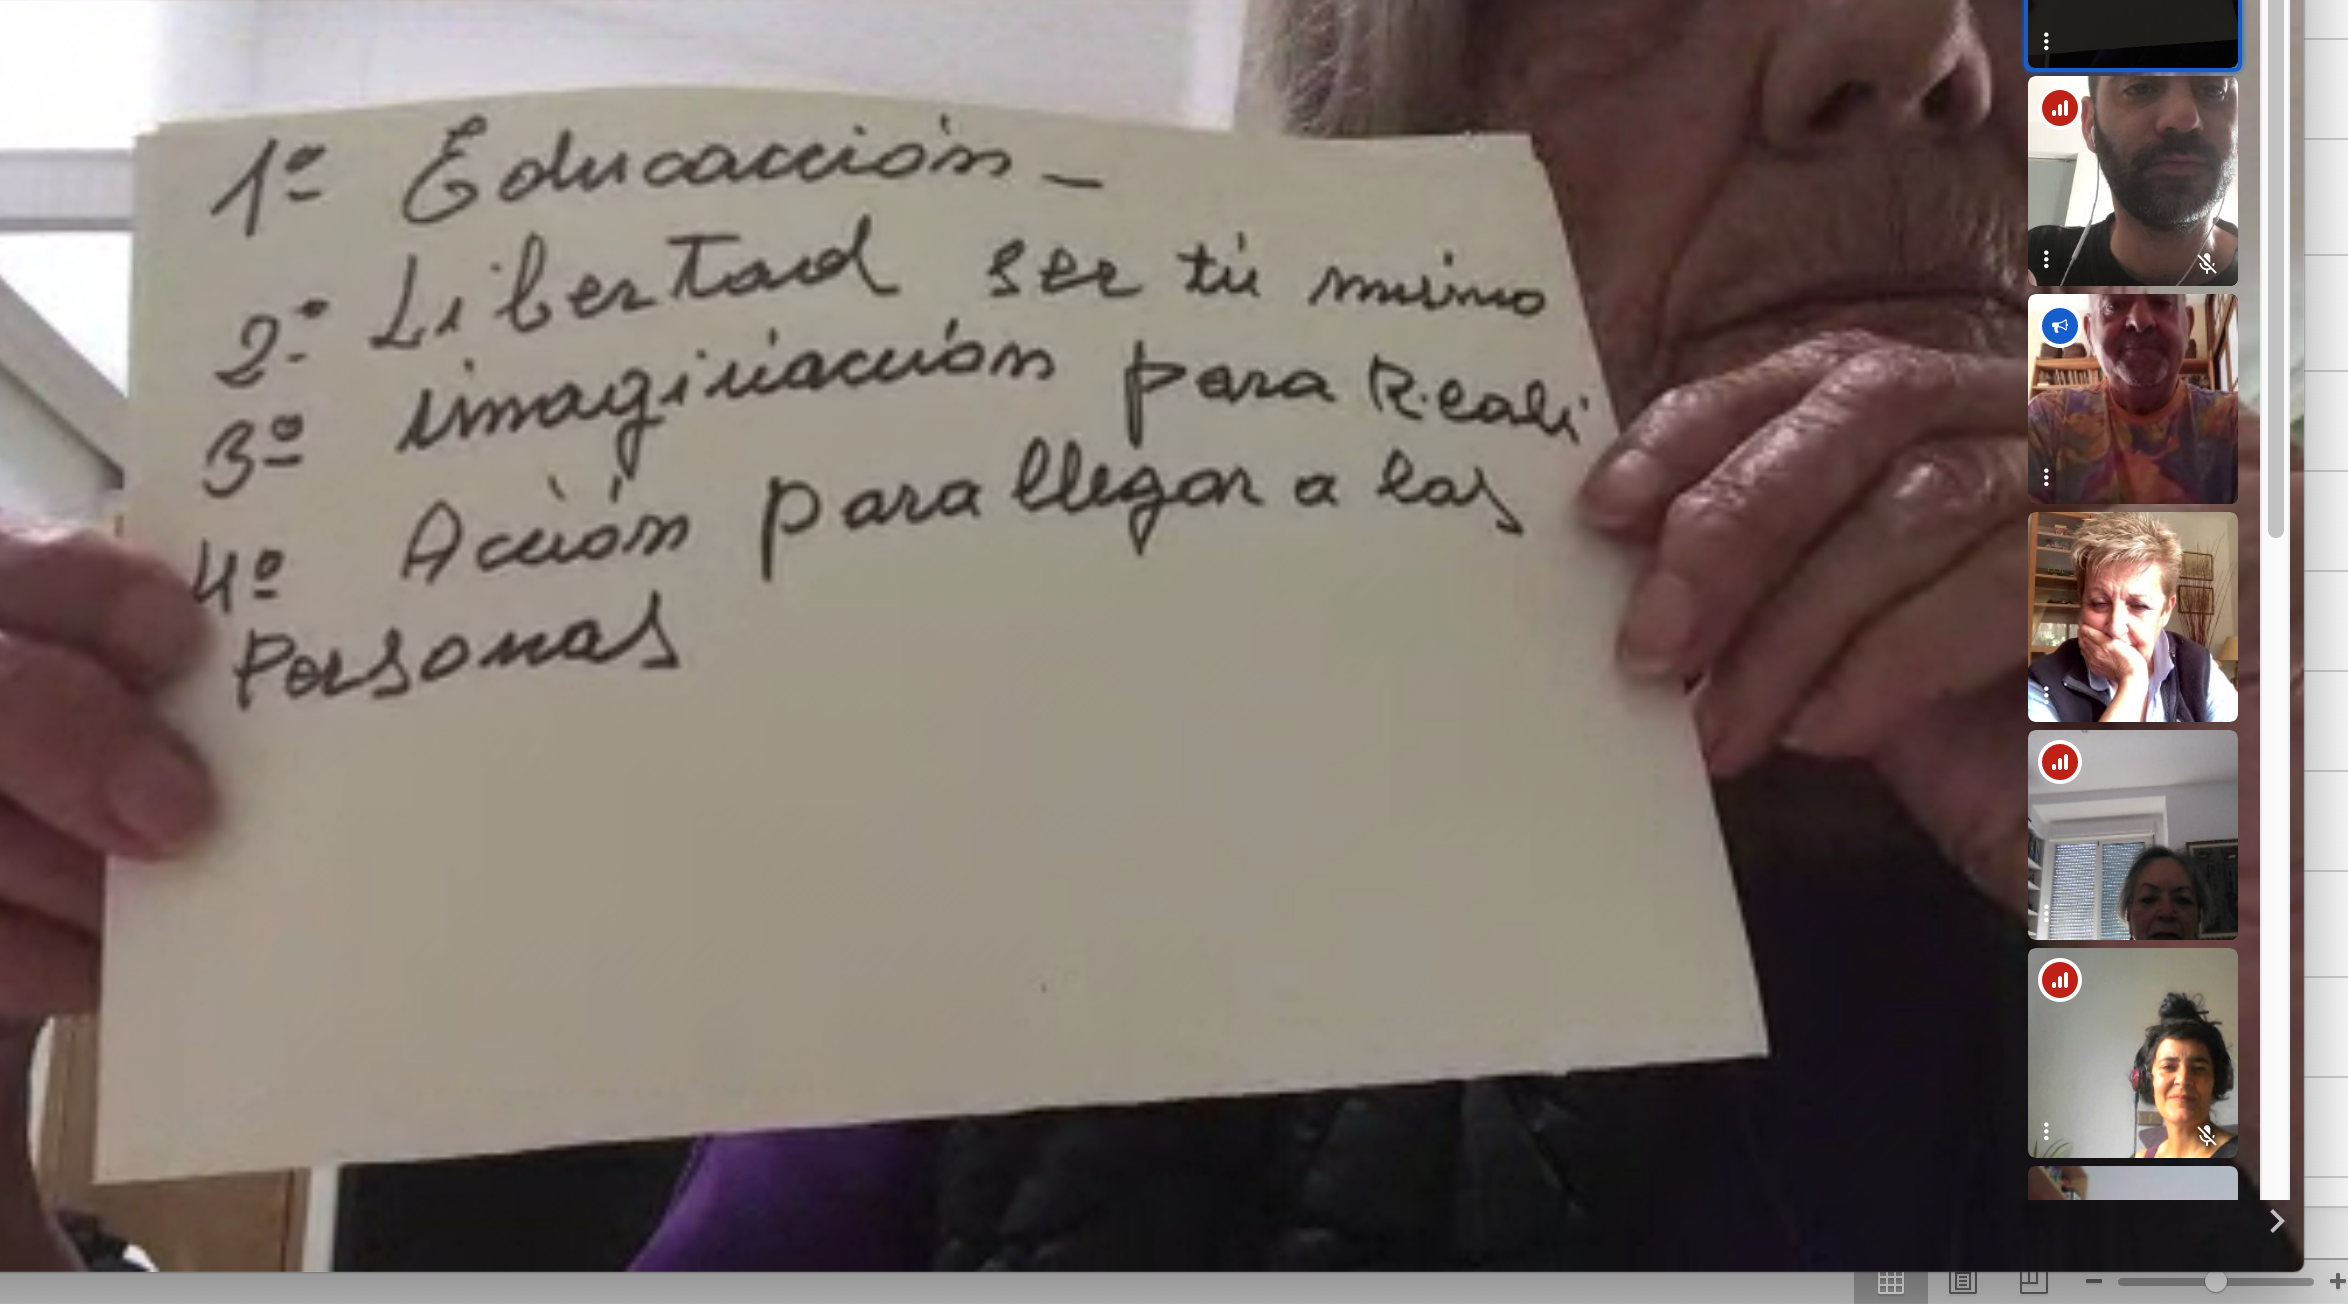 1º Educacción -
2º Libertad ser tú mismo
3º imaginacción para Reali
4º Acción para llegar a las
Personas